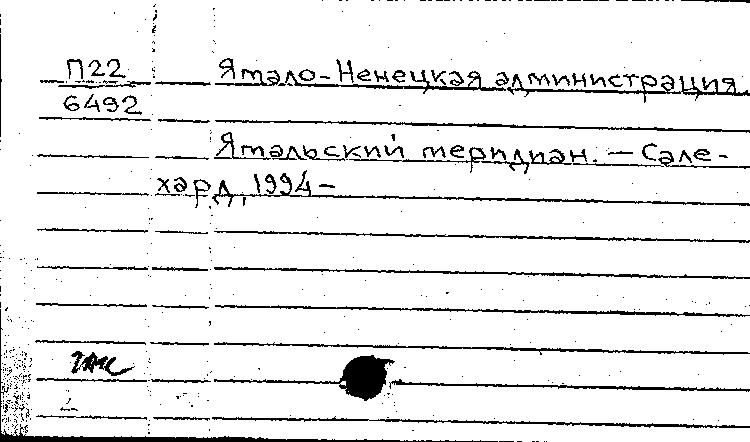 П22 Ямало-Ненецкая администрация.
6492
Ямальский меридиан. — Сале-
хард, 1994 –